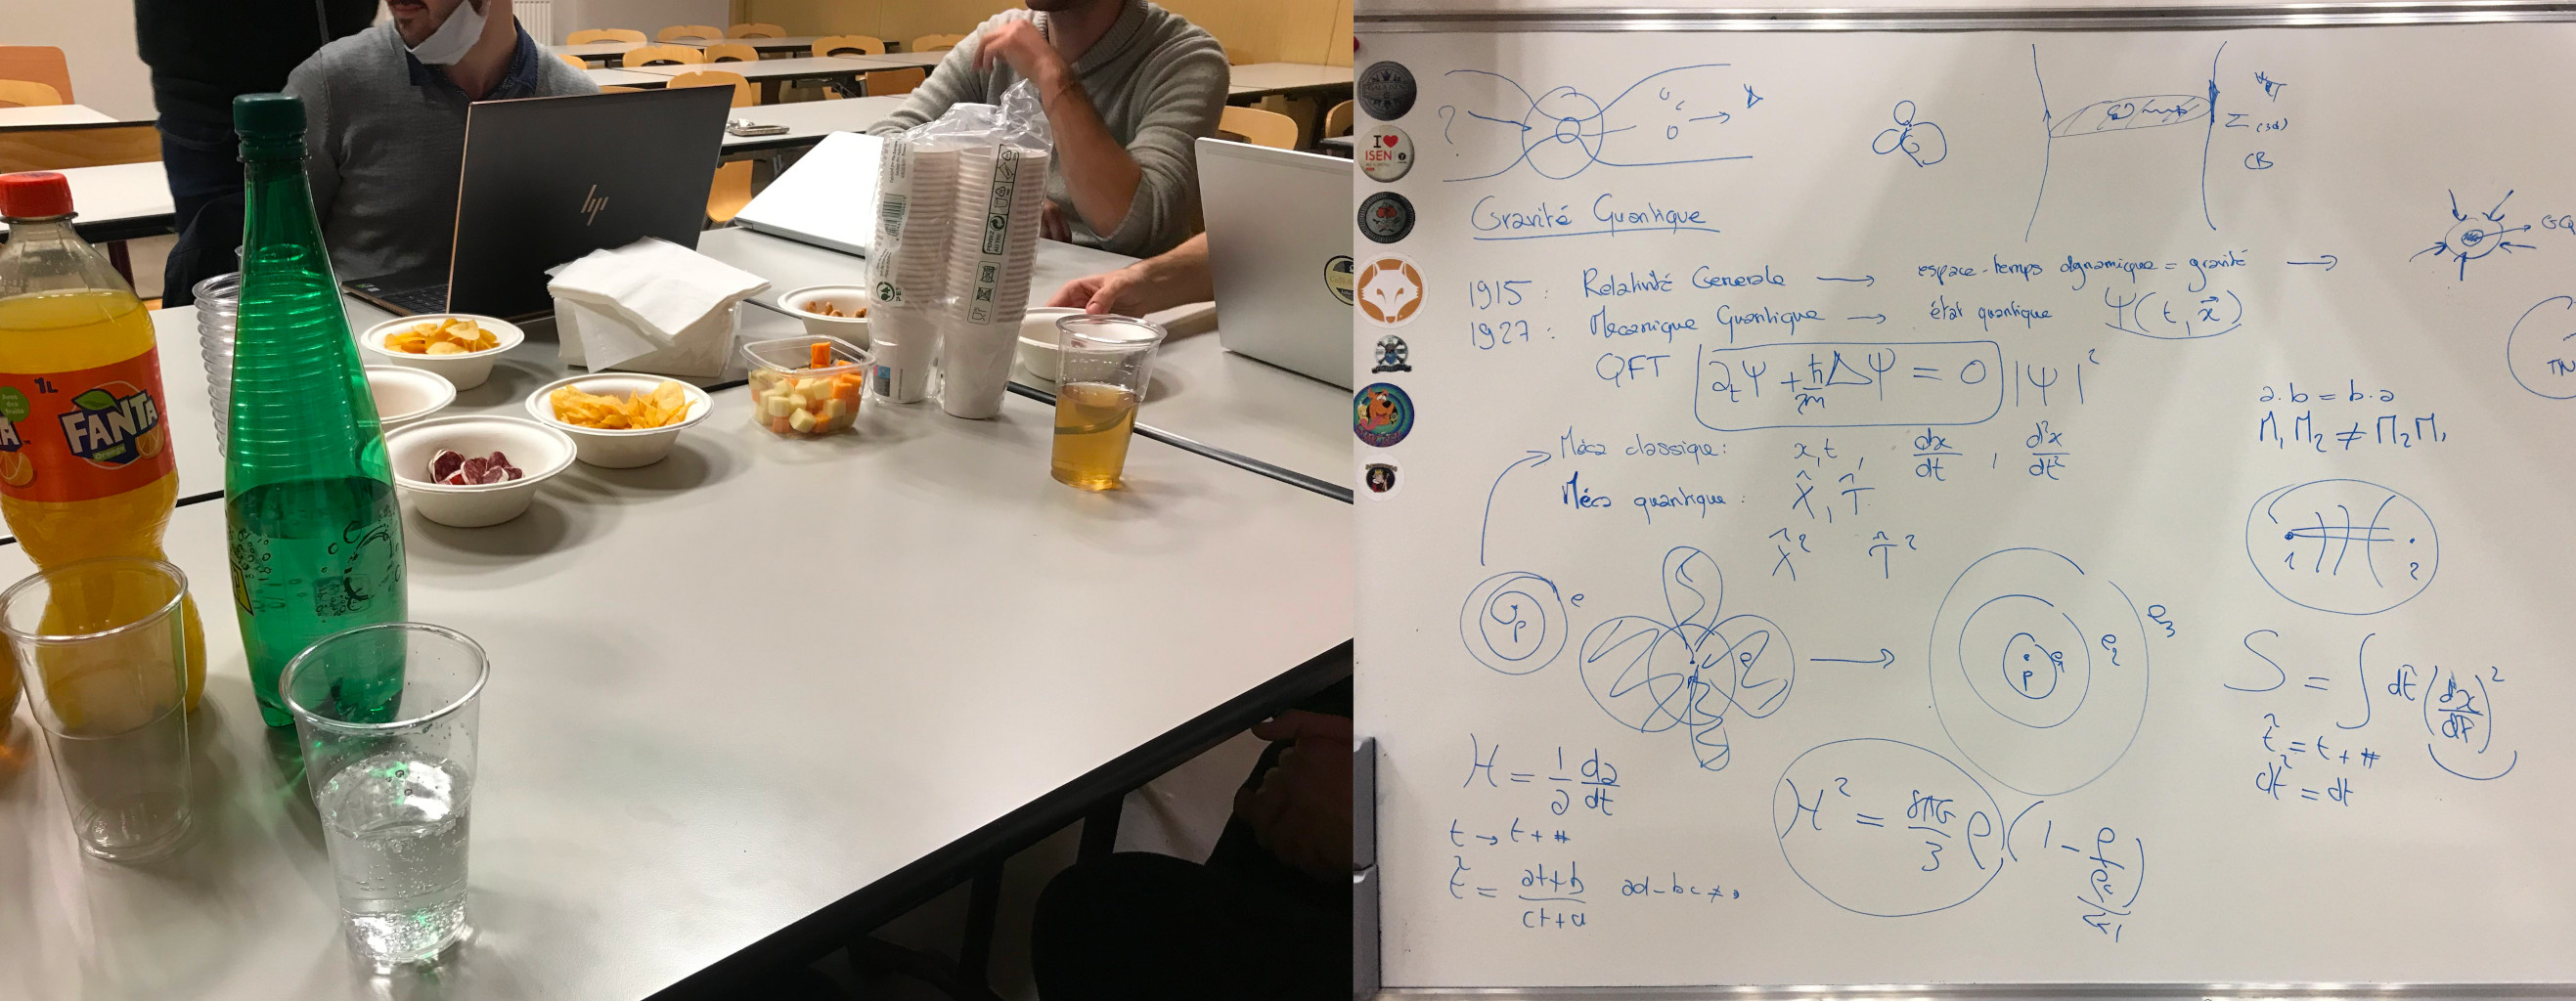 1L
FANTA
Orange
hp
I ❤ ISEN
?
Σ (3d)
CB
Gravité Quantique
1915 : Relativité Generale → espace-temps dynamique = gravité →
1927 : Mecanique Quantique → état quantique Ψ(t, x⃗)
QFT ∂ₜΨ + ħ/2m ΔΨ = 0 |Ψ|²
a.b = b.a
M₁ M₂ ≠ M₂ M₁
Méca classique : x, t, dx/dt, d²x/dt²
Méca quantique : X̂, T̂
X̂² T̂²
1 2
p e
e
p
p e₁ e₂ e₃
S = ∫ dt̃ (dx/dt̃)²
t̃ = t + #
dt̃ = dt
H = 1/a da/dt
t → t + #
t̃ = at+b/ct+d ad-bc ≠ 0
H² = 8πG/3 ρ (1 - ρ/ρc)